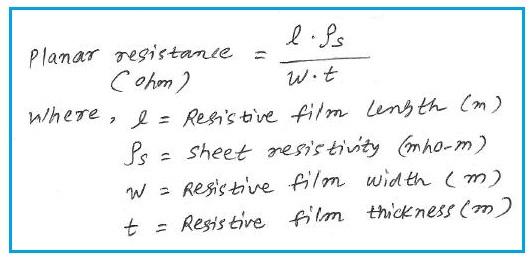 Planar resistance = l · ρs / w · t
(ohm)
where, l = Resistive film length (m)
ρs = sheet resistivity (mho-m)
w = Resistive film width (m)
t = Resistive film thickness (m)